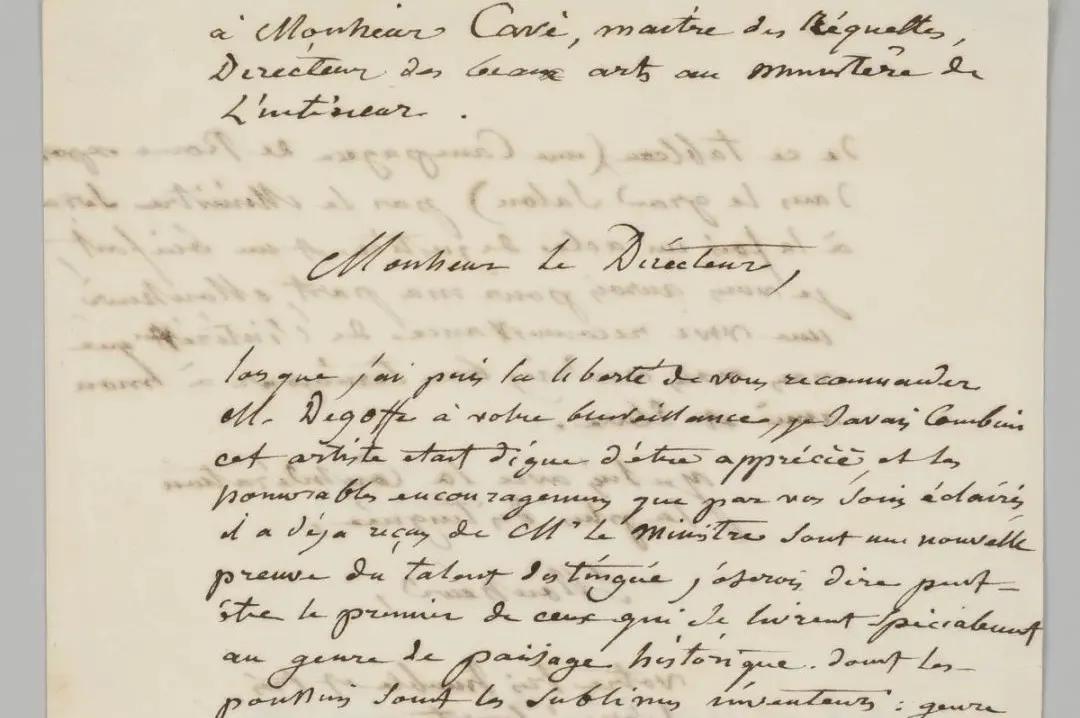 à Monsieur Cavé, maitre des Requettes,
Directeur des beaux arts au ministère de
L'intérieur.
Monsieur le Directeur,
lorsque j'ai pris la liberté de vous recommander
M. Degoffe à votre bienveillance, je savais combien
cet artiste etait digne d'être apprécié, et les
honorables encouragemens que par vos soins éclairés
il a déja reçus de Mr le Ministre sont une nouvelle
preuve du talent distingué, j'oserois dire peut-
être le premier de ceux qui se livrent spécialement
au genre de paisage historique. dont les
poussins sont les sublimes inventeurs : genre